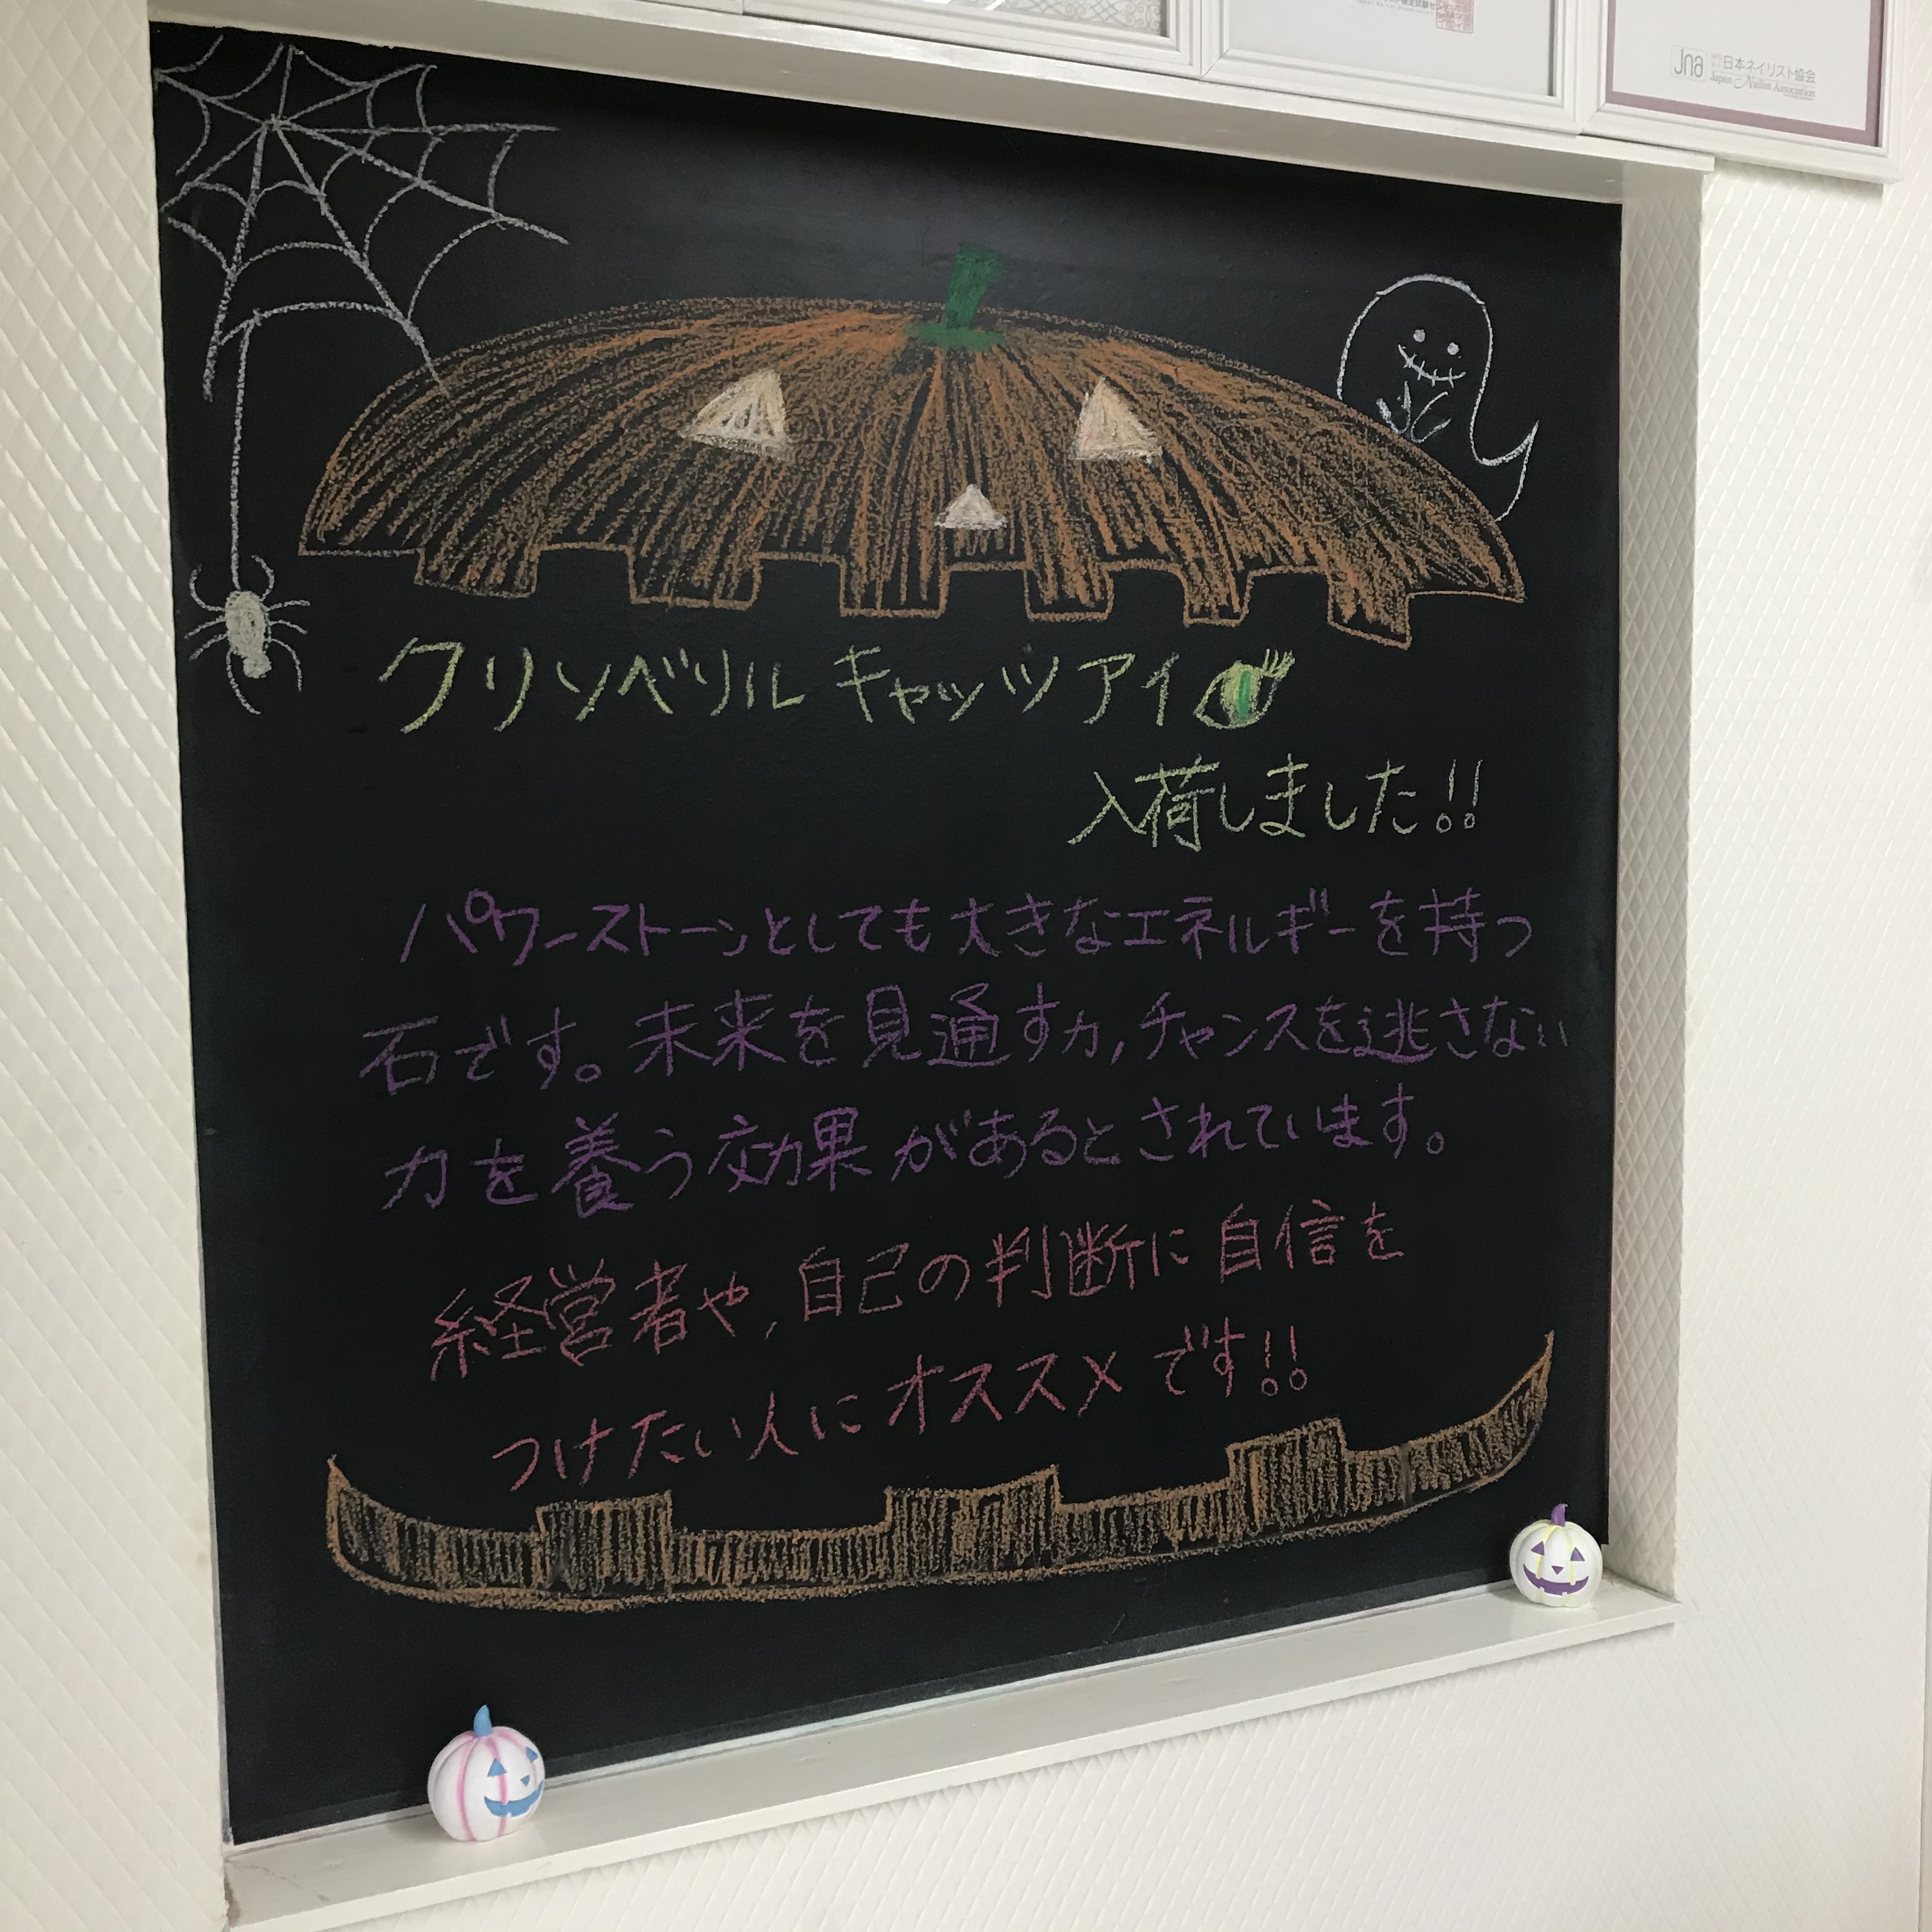 Jna 日本ネイリスト協会
Japan Nailist Association
クリソベリル キャッツアイ
入荷しました!!
パワーストーンとしても大きなエネルギーを持つ
石です。未来を見通す力,チャンスを逃さない
力を養う効果があるとされています。
経営者や,自己の判断に自信を
つけたい人にオススメです!!